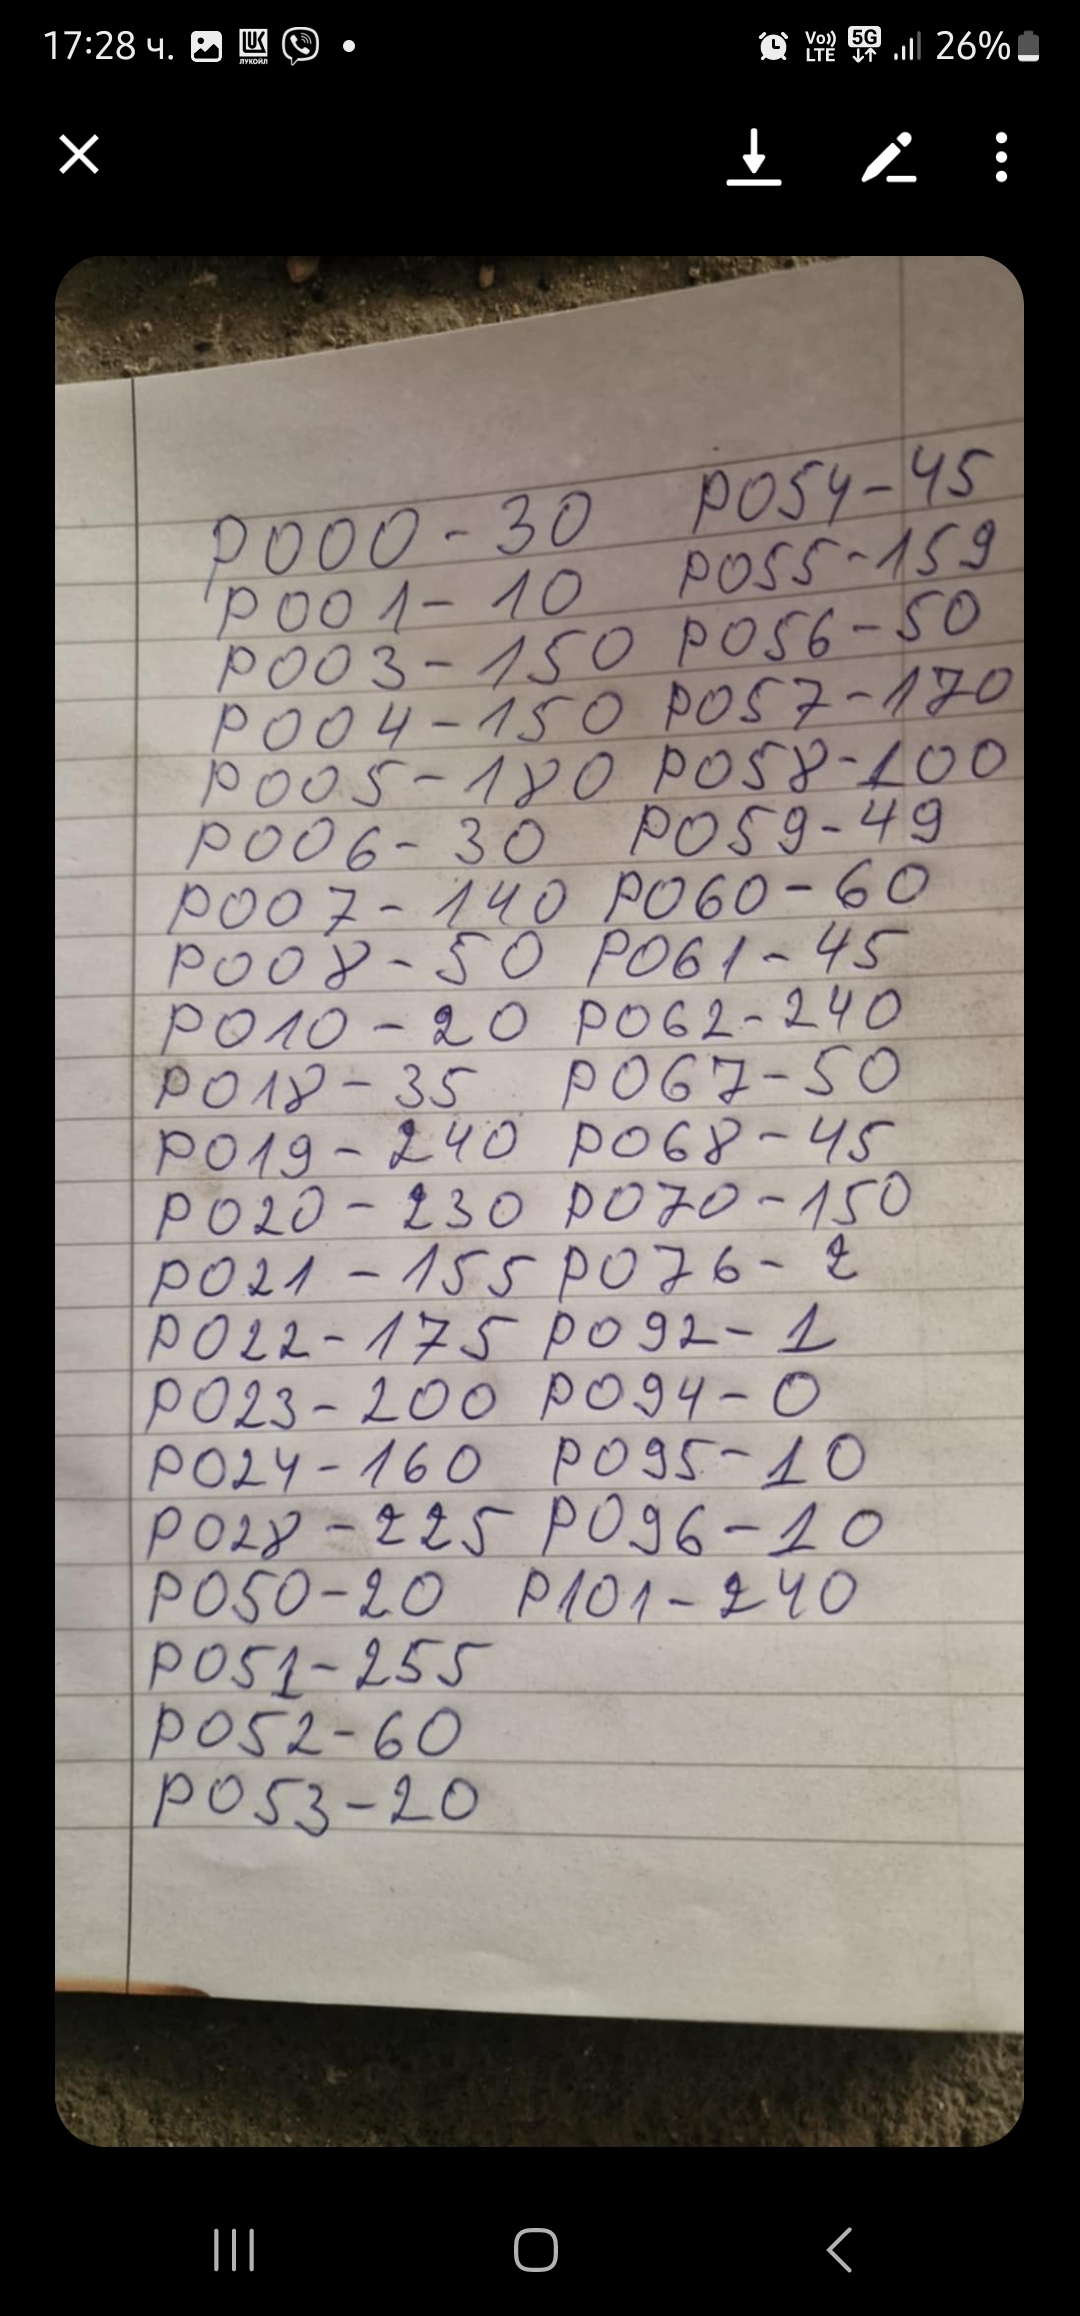 17:28 ч. ЛУКОЙЛ Vo)) LTE 5G 26%
P000-30 P054-45
P001-10 P055-159
P003-150 P056-50
P004-150 P057-170
P005-180 P058-100
P006-30 P059-49
P007-140 P060-60
P008-50 P061-45
P010-20 P062-240
P018-35 P067-50
P019-240 P068-45
P020-230 P070-150
P021-155 P076-2
P022-175 P092-1
P023-200 P094-0
P024-160 P095-10
P028-225 P096-10
P050-20 P101-240
P051-255
P052-60
P053-20